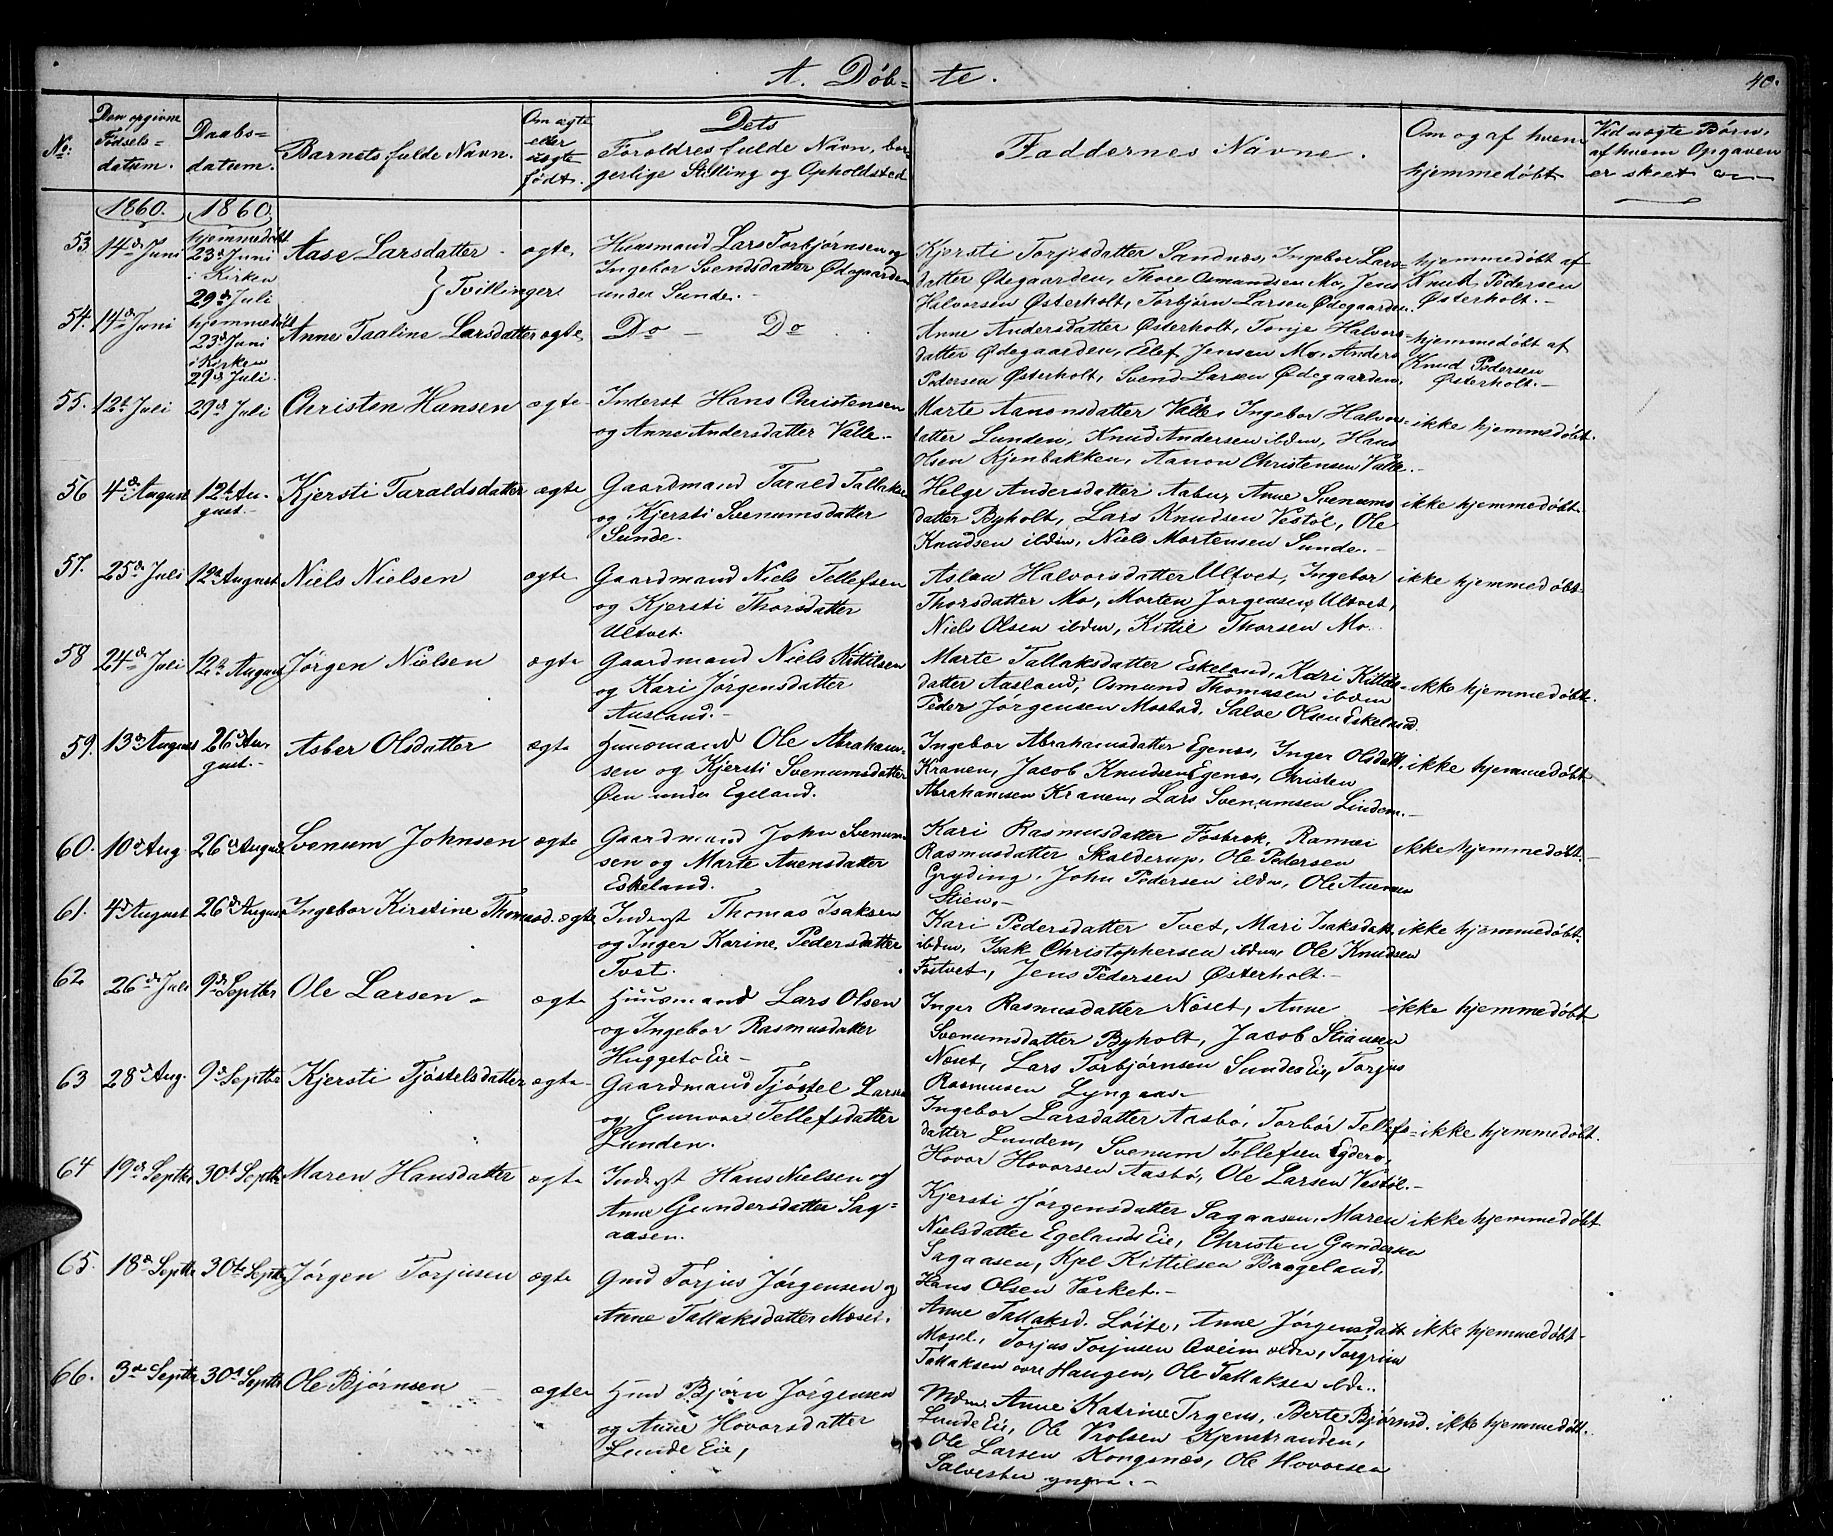 A. Døb- te.
40.
No.
Den opgivne Fødsels-datum.
Daabs-datum.
Barnets fulde Navn.
Om ægte eller uægte født.
Dets Forældres fulde Navn, borgerlige Stilling og Opholdsted
Faddernes Navne.
Om og af hvem hjemmedøbt
Ved uægte Børn, af hvem Opgaven er skeet
1860. 1860.
53. 14de Juni hjemmedøbt 23de Juni i Kirken 29de Juli Aase Larsdatter - ægte
Huusmand Lars Torbjørnsen og
Ingebor Svendsdatter Ødegaarden
under Sunde.-
Kjersti Torjusdatter Sandnæs, Ingebor Lars-
datter Ødegaarden, Thore Osmundsen Mo, Jens
Halvorsen Østerholt, Torbjørn Larsen Ødegaarden.
hjemmedøbt af
Knud Pedersen
Østerholt.-
} Tvillinger
54. 14de Juni hjemmedøbt 23de Juni i Kirken 29de Juli. Anne Taaline Larsdatter ægte
Do - Do
Anne Andersdatter Østerholt, Tonje Halvors-
datter Ødegaarden, Elef Jensen Mo, Anders
Pedersen Østerholt, Svend Larsen Ødegaarden.
hjemmedøbt af
Knud Pedersen
Østerholt.-
55. 12te Juli 29de Juli Christen Hansen ægte
Inderst Hans Christensen
og Anne Andersdatter Valle.-
Marte Aanonsdatter Valle, Ingebor Halvors-
datter Lunden, Knud Andersen ibdm, Hans
Olsen Kjenbakken, Aanon Christensen Valle.-
ikke hjemmedøbt.
56 4de August 12te August.- Kjersti Taraldsdatter ægte
Gaardmand Tarald Tallaksen
og Kjersti Svenumsdatter
Sunde.
Helge Andersdatter Aabu, Anne Svenums-
datter Byholt, Lars Knudsen Vestøl, Ole
Knudsen ibdm, Niels Mortensen Sunde.-
ikke hjemmedøbt.
57. 25de Juli 12te August Niels Nielsen ægte
Gaardmand Niels Tellefsen
og Kjersti Thorsdatter
Ultvet.
Aslau Halvorsdatter Ultvet, Ingebor
Thorsdatter Mo, Morten Jørgensen Ultvet,
Niels Olsen ibdm, Kittil Thorsen Mo.
ikke hjemmedøbt.
58 24de Juli 12te August Jørgen Nielsen ægte
Gaardmand Niels Kittilsen
og Kari Jørgensdatter
Aasland.-
Marte Tallaksdatter Eskeland, Kari Kittils-
datter Aasland, Osmund Thomasen ibdm
Peder Jørgensen Mostad, Salve Olsen Eskeland.
ikke hjemmedøbt.
59. 13de August 26de August.- Asber Olsdatter ægte
Huusmand Ole Abraham-
sen og Kjersti Svenumsdatter
Øen under Egeland.
Ingebor Abrahamsdatter Egenæs, Inger Olsdatt.
Kranen, Jacob Knudsen Egenæs, Christen
Abrahamsen Kranen, Lars Svenumsen Linden.-
ikke hjemmedøbt
60. 10de Aug. 26de August Svenum Johnsen ægte
Gaardmand John Svenum-
sen og Marte Auensdatter
Eskeland.
Kari Rasmusdatter Fosbræk, Ramei
Rasmusdatter Skalderup, Ole Pedersen
Gryding, John Pedersen ibdm, Ole Auensen
Stien.-
ikke hjemmedøbt.-
61. 4de August 26de August Ingebor Kirstine Thomasd. ægte
Inderst Thomas Isaksen
og Inger Karine Pedersdatter
Tvet.
Kari Pedersdatter Tvet, Mari Isaksdatt.
ibdm, Isak Christophersen ibdm, Ole Knudsen
Fostvet, Jens Pedersen Østerholt.-
ikke hjemmedøbt.
62 26de Juli 9de Septbr Ole Larsen - ægte
Huusmand Lars Olsen
og Ingebor Rasmusdatter
Huggeto Eie-
Inger Rasmusdatter Næset, Anne
Svenumsdatter Byholt, Jacob Stiansen
Næset, Lars Torbjørnsen Sundes Eie, Torjus
Rasmusen Lyngaas-
ikke hjemmedøbt
63 28de Aug. 9de Septbr Kjersti Tjøstelsdatter ægte
Gaardmand Tjøstel Larsen
og Gunvor Tellefsdatter
Lunden.
Ingebor Larsdatter Aasbø, Torbør Tellefs-
datter Lunden, Svenum Tellefsen Egderø,
Hovor Hovorsen Aasbø, Ole Larsen Vestøl.-
ikke hjemmedøbt.
64 19de Septbr 30te Septbr Maren Hansdatter ægte
Inderst Hans Nielsen og
Anne Gundersdatter Sag-
aasen.
Kjersti Jørgensdatter Sagaasen, Maren
Nielsdatter Egelands Eie, Christen Gundersen
Sagaasen, Kjel Kittilsen Brægeland,
Hans Olsen Varket.-
ikke hjemmedøbt
65. 18de Septbr 30te Septbr Jørgen Torjusen ægte
Gmd Torjus Jørgensen og
Anne Tallaksdatter Mæsel.
Anne Tallaksd. Løite, Anne Jørgensdatt
Mæsel, Torjus Torjusen Aveim, Torgrim
Tallaksen øvre Haugen, Ole Tallaksen ibdm.
ikke hjemmedøbt-
66. 3die Septbr 30te Septbr Ole Bjørnsen - ægte
Hmd Bjørn Jørgensen
og Anne Hovorsdatter
Lunde Eie,
Mdm. Anne Katrine Trgens, Berte Bjørnsd.
Lunde Eie, Ole Vrolsen Kjenstranden,
Ole Larsen Kongsnæs, Ole Hovorsen
Salvester yngre.-
ikke hjemmedøbt.